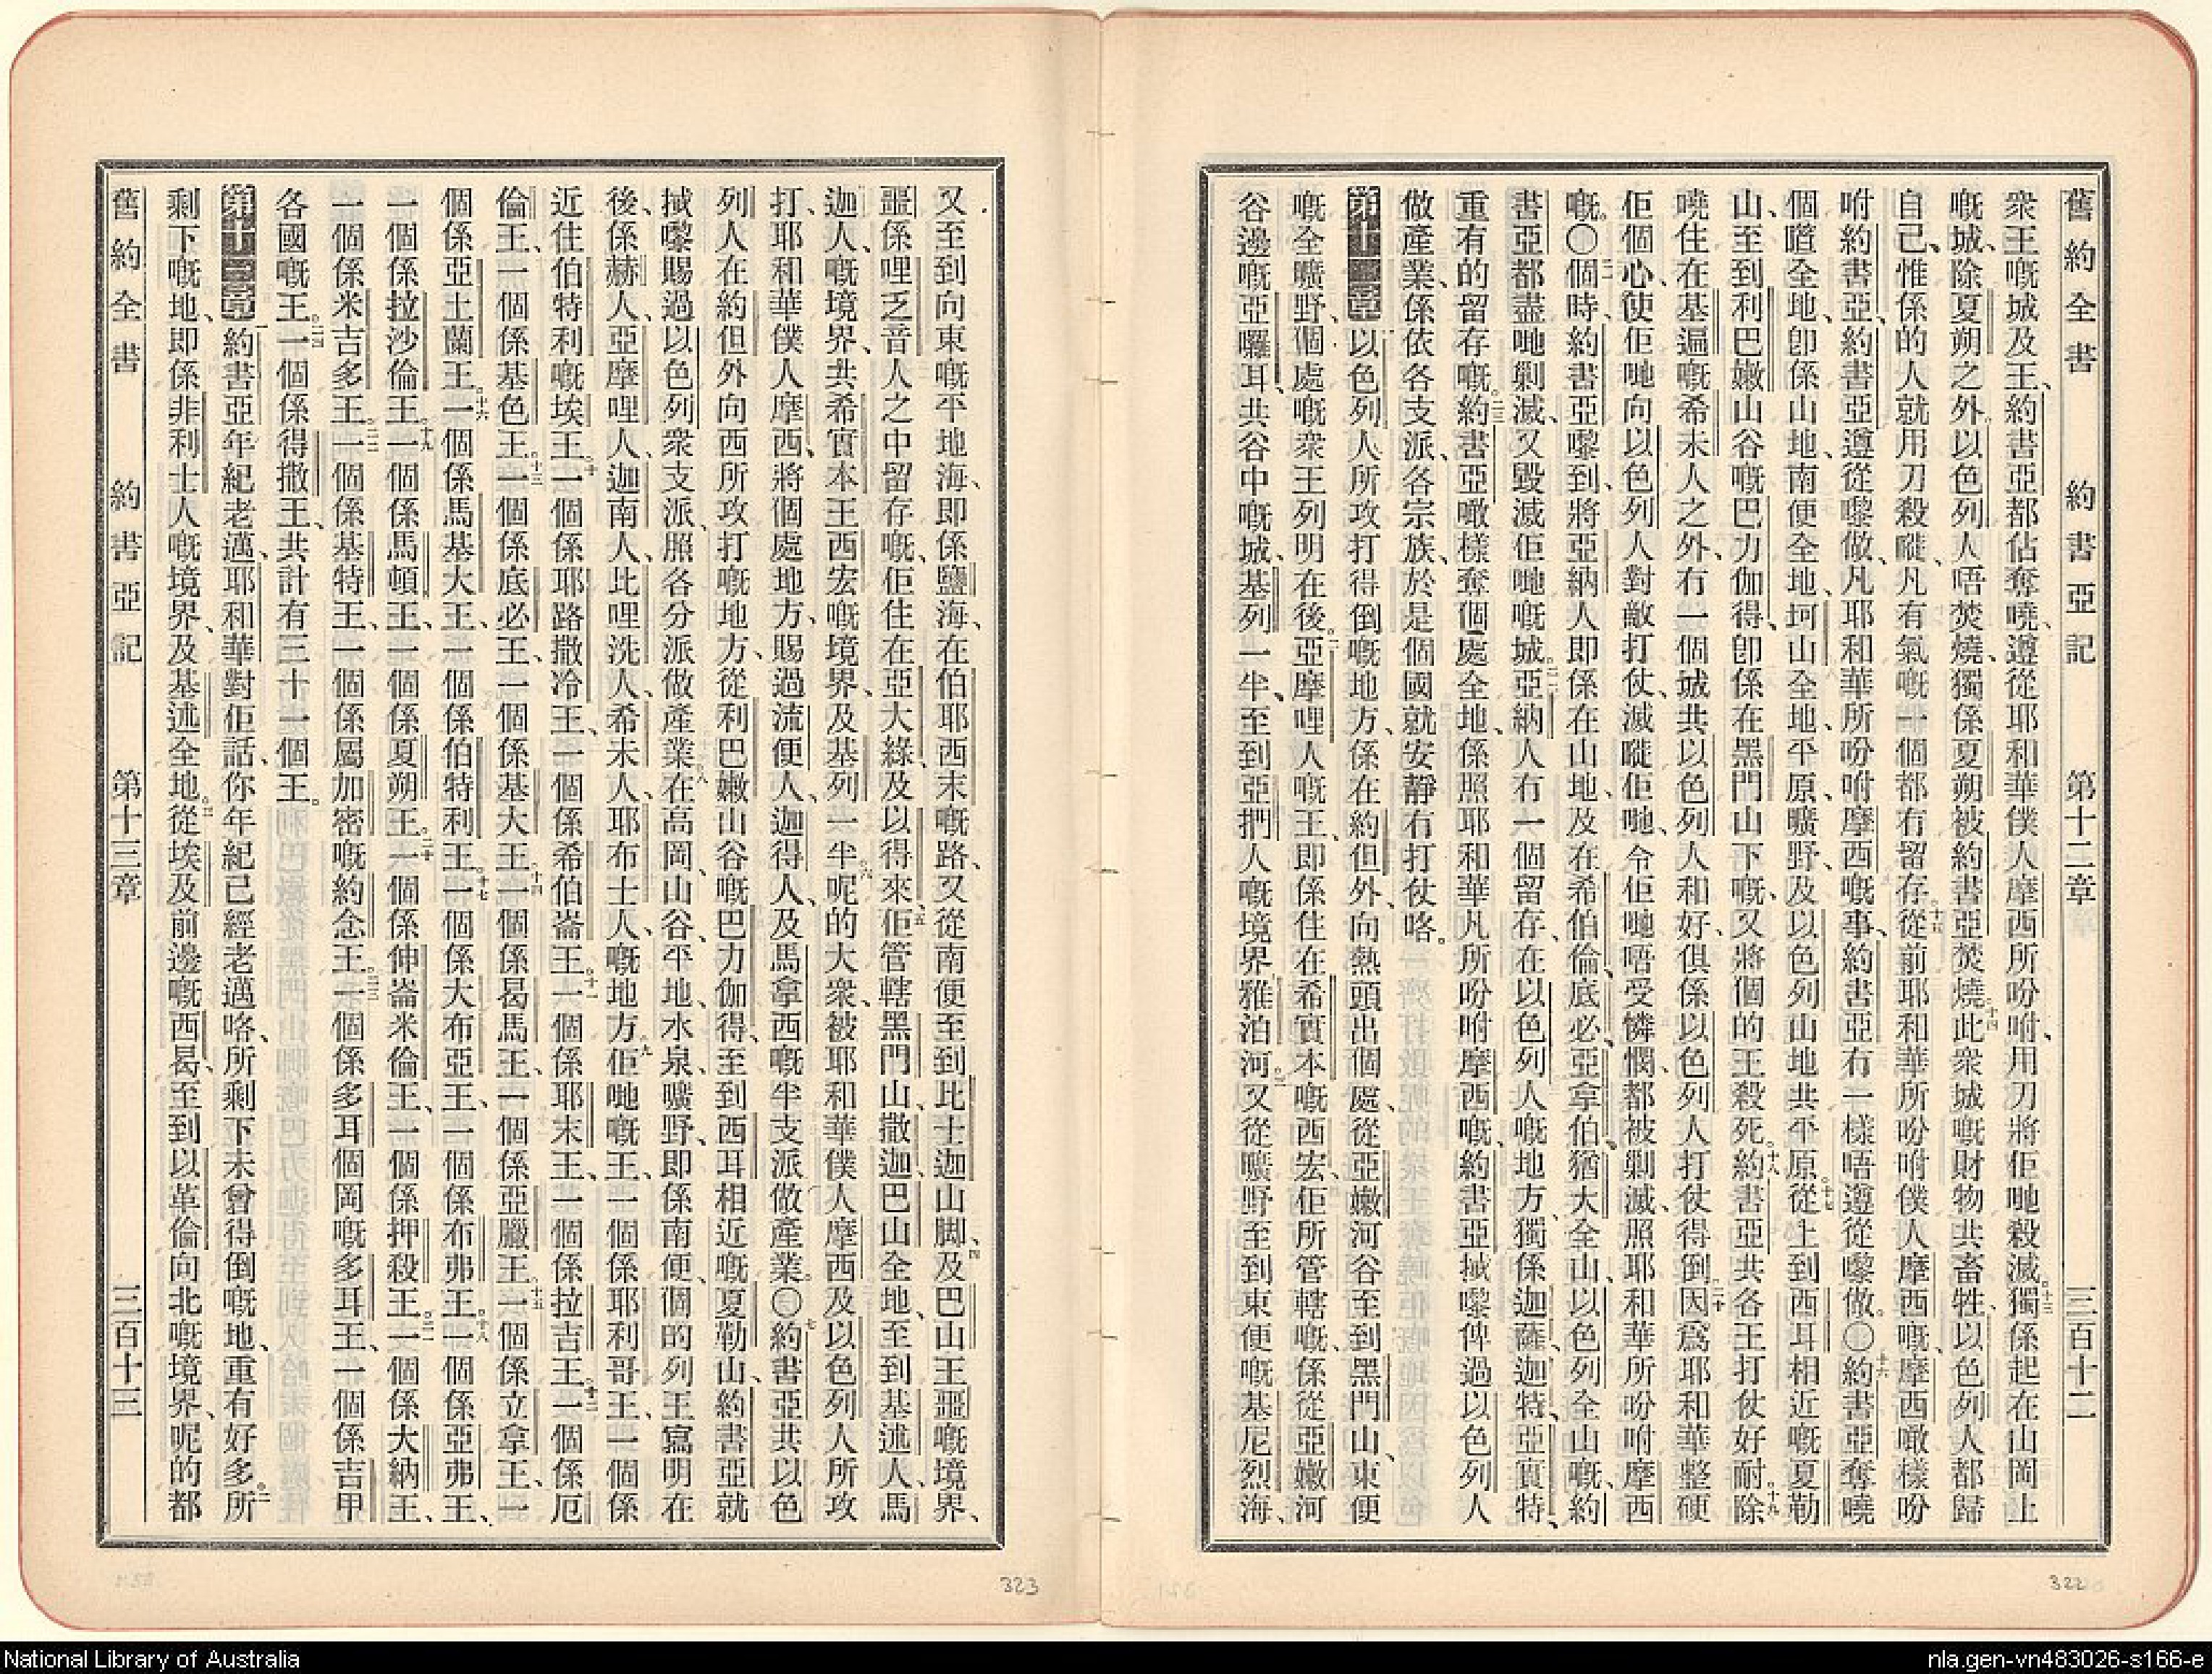 舊約全書 約書亞記 第十二章 三百十二
衆王嘅城及王、約書亞都佔奪嘵、遵從耶和華僕人摩西所吩咐、用刀將佢哋殺滅。十三獨係起在山岡上
嘅城、除夏朔之外、以色列人唔焚燒、獨係夏朔被約書亞焚燒。十四此衆城嘅財物共畜牲、以色列人都歸
自己、惟係的人就用刀殺嘥、凡有氣嘅一個都冇留存。十五從前耶和華所吩咐僕人摩西嘅、摩西噉樣吩
咐約書亞、約書亞遵從嚟做、凡耶和華所吩咐摩西嘅事、約書亞冇一樣唔遵從嚟做。〇十六約書亞奪嘵
個噠全地、卽係山地、南便全地、坷山全地、平原、曠野、及以色列山地共平原。十七從上到西耳相近嘅夏勒
山、至到利巴嫩山谷嘅巴力伽得、卽係在黑門山下嘅、又將個的王殺死。十八約書亞共各王打仗好耐。十九除
嘵住在基遍嘅希未人之外、冇一個城共以色列人和好、俱係以色列人打仗得倒。二十因爲耶和華整硬
佢個心、使佢哋向以色列人對敵打仗、滅嘥佢哋、令佢哋唔受憐憫、都被剿滅、照耶和華所吩咐摩西
嘅。〇二一個時、約書亞嚟到、將亞納人即係在山地、及在希伯倫、底必、亞拿伯、猶大全山、以色列全山嘅、約
書亞都盡哋剿滅、又毀滅佢哋嘅城。二二亞納人冇一個留存、在以色列人嘅地方、獨係迦薩、迦特、亞實特、
重有的留存嘅。二三約書亞噉樣奪個處全地、係照耶和華凡所吩咐摩西嘅、約書亞掝嚟俾過以色列人
做產業、係依各支派、各宗族、於是個國就安靜冇打仗咯。
第十二章 以色列人所攻打得倒嘅地方、係在約但外、向熱頭出個處、從亞嫩河谷至到黑門山、東便
嘅全曠野、個處嘅衆王列明在後。二亞摩哩人嘅王、即係住在希實本嘅西宏、佢所管轄嘅、係從亞嫩河
谷邊嘅亞囉耳、共谷中嘅城、基列一半、至到亞捫人嘅境界雅泊河。三又從曠野至到東便嘅基尼烈海、
又至到向東嘅平地海、即係鹽海、在伯耶西末嘅路、又從南便至到比士迦山脚、四及巴山王噩嘅境界、
噩係哩乏音人之中留存嘅、佢住在亞大綠、及以得來、五佢管轄黑門山、撒迦、巴山全地、至到基述人、馬
迦人嘅境界、共希實本王西宏嘅境界、及基列一半。六呢的大衆、被耶和華僕人摩西、及以色列人所攻
打、耶和華僕人摩西、將個處地方、賜過流便人、迦得人、及馬拿西嘅半支派做產業。〇七約書亞共以色
列人在約但外向西所攻打嘅地方、從利巴嫩山谷嘅巴力伽得、至到西耳相近嘅夏勒山、約書亞就
掝嚟賜過以色列衆支派、照各分派做產業。八在高岡、山谷、平地、水泉、曠野、即係南便、個的列王寫明在
後、係赫人、亞摩哩人、迦南人、比哩洗人、希未人、耶布士人、嘅地方。九佢哋嘅王、一個係耶利哥王、一個係
近住伯特利嘅埃王。十一個係耶路撒冷王、一個係希伯崙王。十一一個係耶末王、一個係拉吉王。十二一個係厄
倫王、一個係基色王。十三一個係底必王、一個係基大王。十四一個係曷馬王、一個係亞臘王。十五一個係立拿王、一
個係亞土蘭王。十六一個係馬基大王、一個係伯特利王。十七一個係大布亞王、一個係布弗王。十八一個係亞弗王、
一個係拉沙倫王。十九一個係馬頓王、一個係夏朔王。二十一個係伸崙米倫王、一個係押殺王。二一一個係大納王、
一個係米吉多王。二二一個係基特王、一個係屬加密嘅約念王。二三一個係多耳個岡嘅多耳王、一個係吉甲
各國嘅王。二四一個係得撒王、共計有三十一個王。
第十三章 一約書亞年紀老邁、耶和華對佢話、你年紀已經老邁咯、所剩下未曾得倒嘅地、重有好多。二所
剩下嘅地、即係非利士人嘅境界、及基述全地。三從埃及前邊嘅西曷、至到以革倫向北嘅境界、呢的都
舊約全書 約書亞記 第十三章 三百十三
323
322
National Library of Australia
nla.gen-vn483026-s166-e